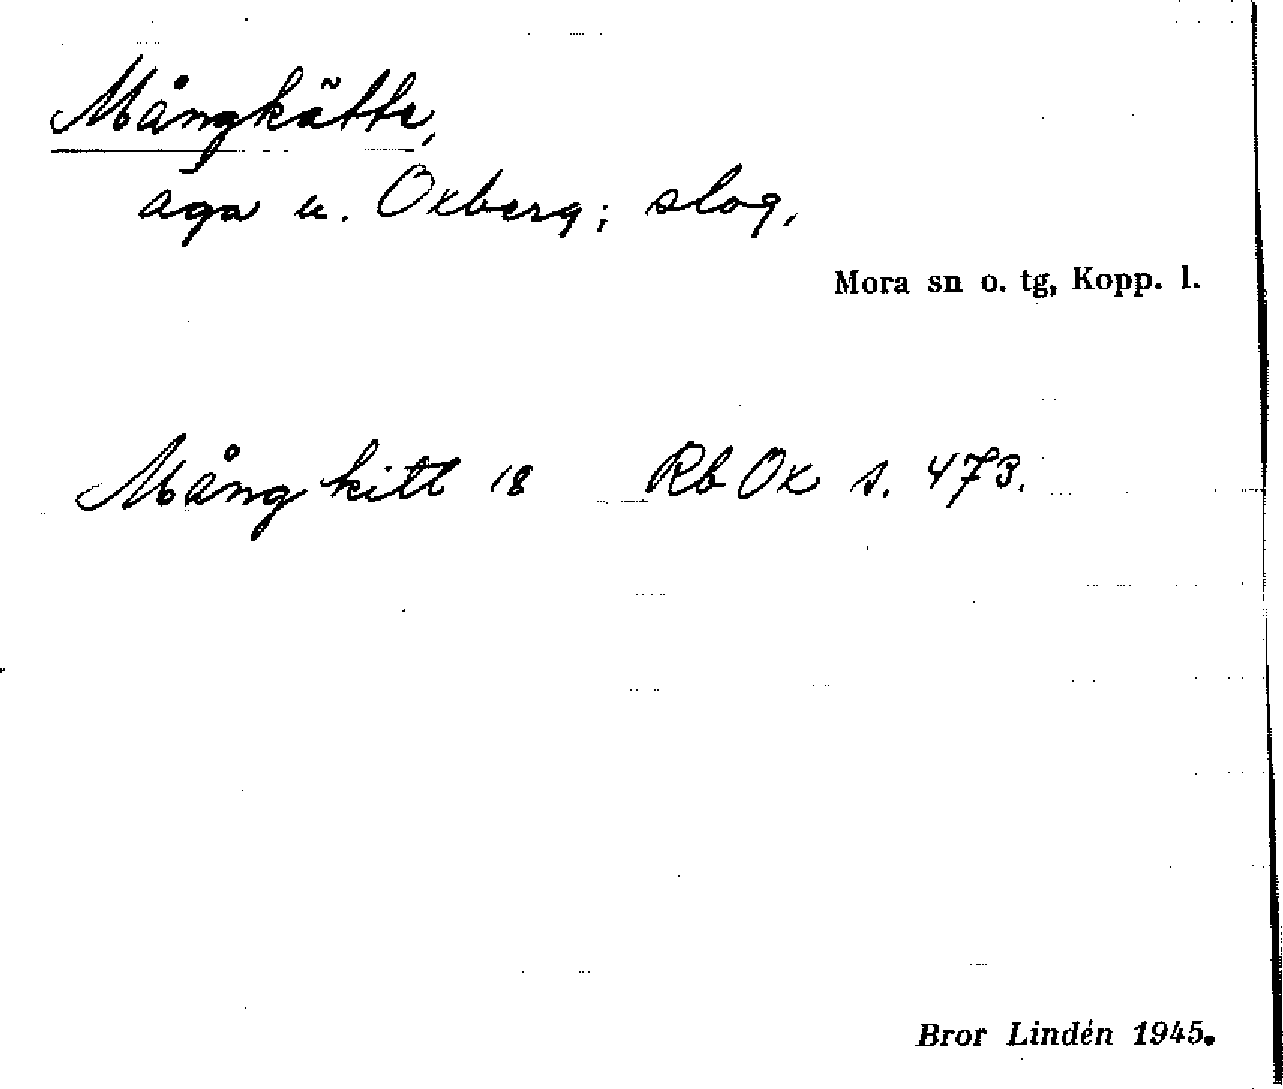 Mångkätte,
äga u. Oxberg; slog,
Mora sn o. tg, Kopp. l.
Mångkitt 18 Rb Ox s. 473.
Bror Lindén 1945.